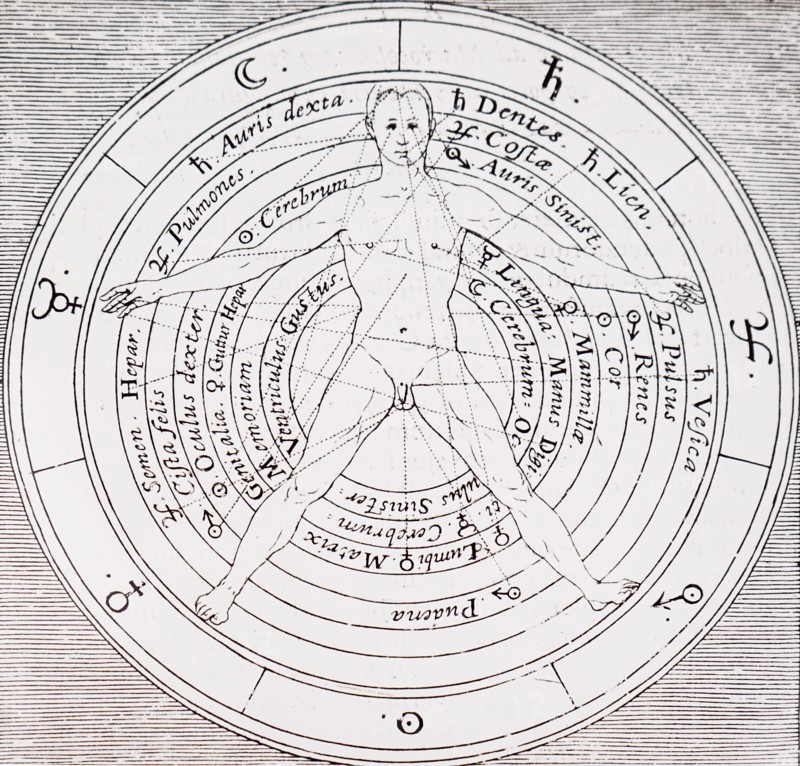 ☾.
♄.
♄ Auris dexta.
♃ Pulmones.
☉ Cerebrum
♄ Dentes.
♃ Costæ
♂ Auris Sinist.
♄ Lien.
☿ Lingua: Manus Digi
☾ Cerebrum: Oc
♀ Mammillæ
☉ Cor
♂ Renes
♃ Pulsus
♄ Vesica
♃.
☿
Hepar.
♃ Semen.
♂ Cista felis
☉ Oculus dexter
♀ Genitalia
♀ Gutur Hepar
Memoriam
Ventriculus Gustus.
ulus Sinister
☿ Cerebrum
ti
♀ Lumbi
♀ Matrix
♂ Pudena
♀
♂
☉.